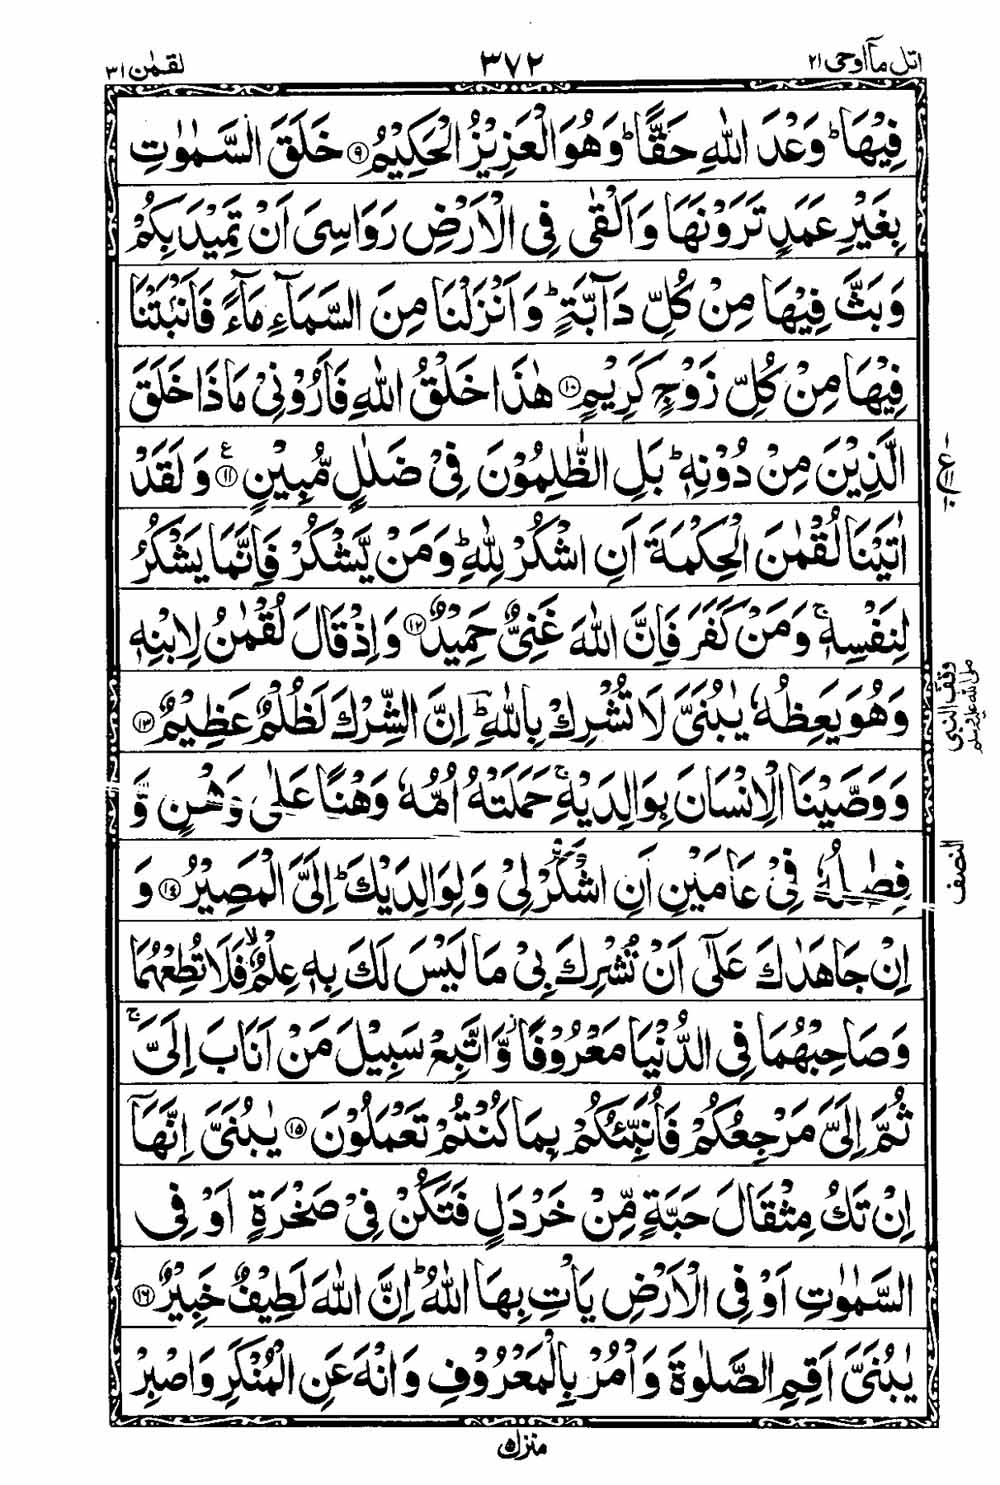 اتل مآ اوحی ۲۱
۳۷۲
لقمٰن ۳۱
فِيْهَا ؕ وَعْدَ اللّٰهِ حَقًّا ؕ وَهُوَ الْعَزِيْزُ الْحَكِيْمُ ۹ خَلَقَ السَّمٰوٰتِ
بِغَيْرِ عَمَدٍ تَرَوْنَهَا وَاَلْقٰى فِى الْاَرْضِ رَوَاسِىَ اَنْ تَمِيْدَ بِكُمْ
وَبَثَّ فِيْهَا مِنْ كُلِّ دَآبَّةٍ ؕ وَاَنْزَلْنَا مِنَ السَّمَآءِ مَآءً فَاَنْۢبَتْنَا
فِيْهَا مِنْ كُلِّ زَوْجٍ كَرِيْمٍ ۱۰ هٰذَا خَلْقُ اللّٰهِ فَاَرُوْنِىْ مَاذَا خَلَقَ
الَّذِيْنَ مِنْ دُوْنِهٖ ؕ بَلِ الظّٰلِمُوْنَ فِىْ ضَلٰلٍ مُّبِيْنٍ ۱۱ ع وَلَقَدْ
اٰتَيْنَا لُقْمٰنَ الْحِكْمَةَ اَنِ اشْكُرْ لِلّٰهِ ؕ وَمَنْ يَّشْكُرْ فَاِنَّمَا يَشْكُرُ
لِنَفْسِهٖ ۚ وَمَنْ كَفَرَ فَاِنَّ اللّٰهَ غَنِىٌّ حَمِيْدٌ ۱۲ وَاِذْ قَالَ لُقْمٰنُ لِابْنِهٖ
وَهُوَ يَعِظُهٗ يٰبُنَىَّ لَا تُشْرِكْ بِاللّٰهِ ؕ اِنَّ الشِّرْكَ لَظُلْمٌ عَظِيْمٌ ۱۳
وَوَصَّيْنَا الْاِنْسَانَ بِوَالِدَيْهِ ۚ حَمَلَتْهُ اُمُّهٗ وَهْنًا عَلٰى وَهْنٍ وَّ
فِصٰلُهٗ فِىْ عَامَيْنِ اَنِ اشْكُرْ لِىْ وَلِوَالِدَيْكَ ؕ اِلَىَّ الْمَصِيْرُ ۱۴ وَ
اِنْ جَاهَدٰكَ عَلٰٓى اَنْ تُشْرِكَ بِىْ مَا لَيْسَ لَكَ بِهٖ عِلْمٌ ۙ فَلَا تُطِعْهُمَا
وَصَاحِبْهُمَا فِى الدُّنْيَا مَعْرُوْفًا ؗ وَّاتَّبِعْ سَبِيْلَ مَنْ اَنَابَ اِلَىَّ ۚ
ثُمَّ اِلَىَّ مَرْجِعُكُمْ فَاُنَبِّئُكُمْ بِمَا كُنْتُمْ تَعْمَلُوْنَ ۱۵ يٰبُنَىَّ اِنَّهَآ
اِنْ تَكُ مِثْقَالَ حَبَّةٍ مِّنْ خَرْدَلٍ فَتَكُنْ فِىْ صَخْرَةٍ اَوْ فِى
السَّمٰوٰتِ اَوْ فِى الْاَرْضِ يَاْتِ بِهَا اللّٰهُ ؕ اِنَّ اللّٰهَ لَطِيْفٌ خَبِيْرٌ ۱۶
يٰبُنَىَّ اَقِمِ الصَّلٰوةَ وَاْمُرْ بِالْمَعْرُوْفِ وَانْهَ عَنِ الْمُنْكَرِ وَاصْبِرْ
وقف النبی
صلى الله عليه وسلم
النصف
منزل ۵